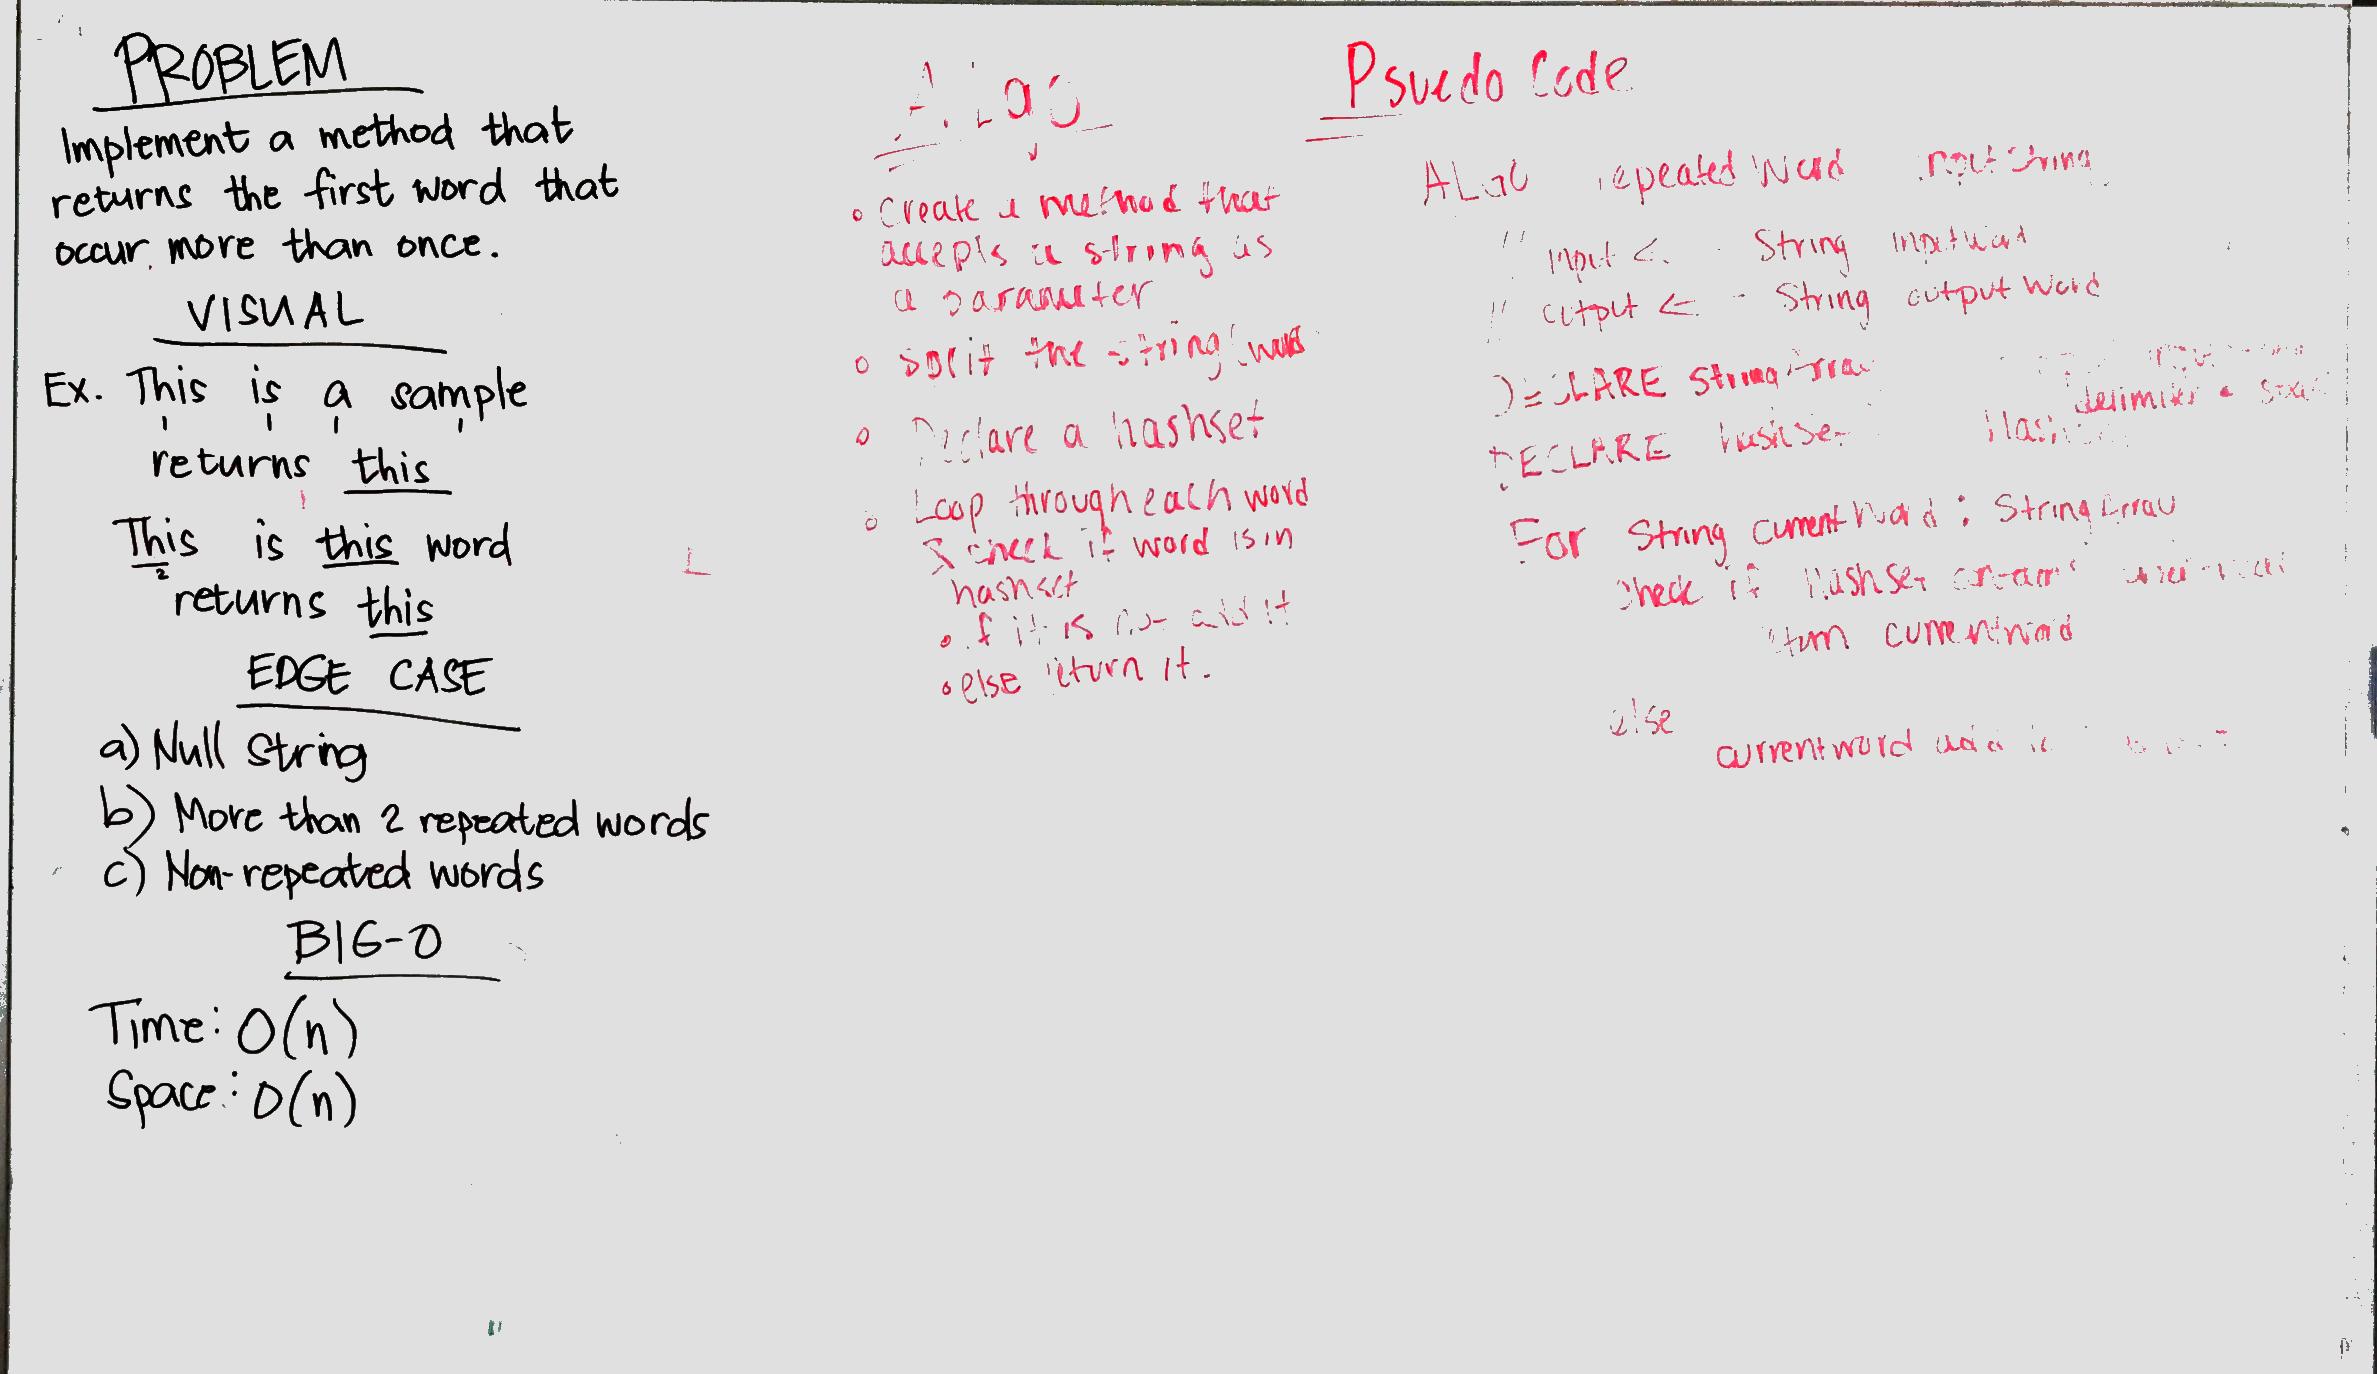 PROBLEM
Implement a method that
returns the first word that
occur more than once.
VISUAL
Ex. This is a sample
returns this
This is this word
2
returns this
EDGE CASE
a) Null String
b) More than 2 repeated words
c) Non-repeated words
BIG-O
Time: O(n)
Space: O(n)
ALGO
Create a method that
accepts a string as
a parameter
Split the string
Declare a hashset
Loop through each word
& check if word is in
hashset
if it is not add it
else return it.
Psuedo Code
ALGO repeated Word inputString
// input <- String inputWord
// output <- String outputWord
DECLARE stringArray
delimiter
DECLARE hashSet
For String currentWord : StringArray
check if HashSet contains
return currentWord
else
currentword add